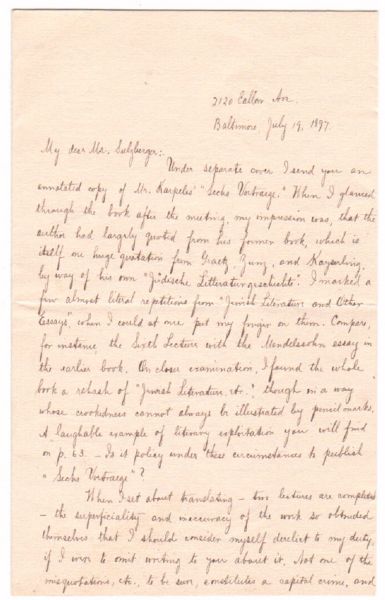 2120 Callow Ave.
Baltimore, July 19, 1897.
My dear Mr. Sulzberger:
Under separate cover I send you an
annotated copy of Mr. Karpeles' "Sechs Vortraege." When I glanced
through the book after the meeting, my impression was, that the
author had largely quoted from his former book, which is
itself one huge quotation from Graetz, Zunz, and Kayserling,
by way of his own "Jüdische Litteraturgeschichte". I marked a
few almost literal repetitions from "Jewish Literature and Other
Essays" when I could at once put my finger on them. Compare,
for instance the Sixth Lecture with the Mendelssohn essay in
the earlier book. On closer examination, I found the whole
book a rehash of "Jewish Literature, etc.", though in a way
whose crookedness cannot always be illustrated by pencil marks.
A laughable example of literary exploitation you will find
on p. 63. – Is it policy under these circumstances to publish
"Sechs Vortraege"?
When I set about translating – two lectures are completed
– the superficiality and inaccuracy of the work so obtruded
themselves that I should consider myself derelict to my duty,
if I were to omit writing to you about it. Not one of the
misquotations, etc., to be sure, constitutes a capital crime, and